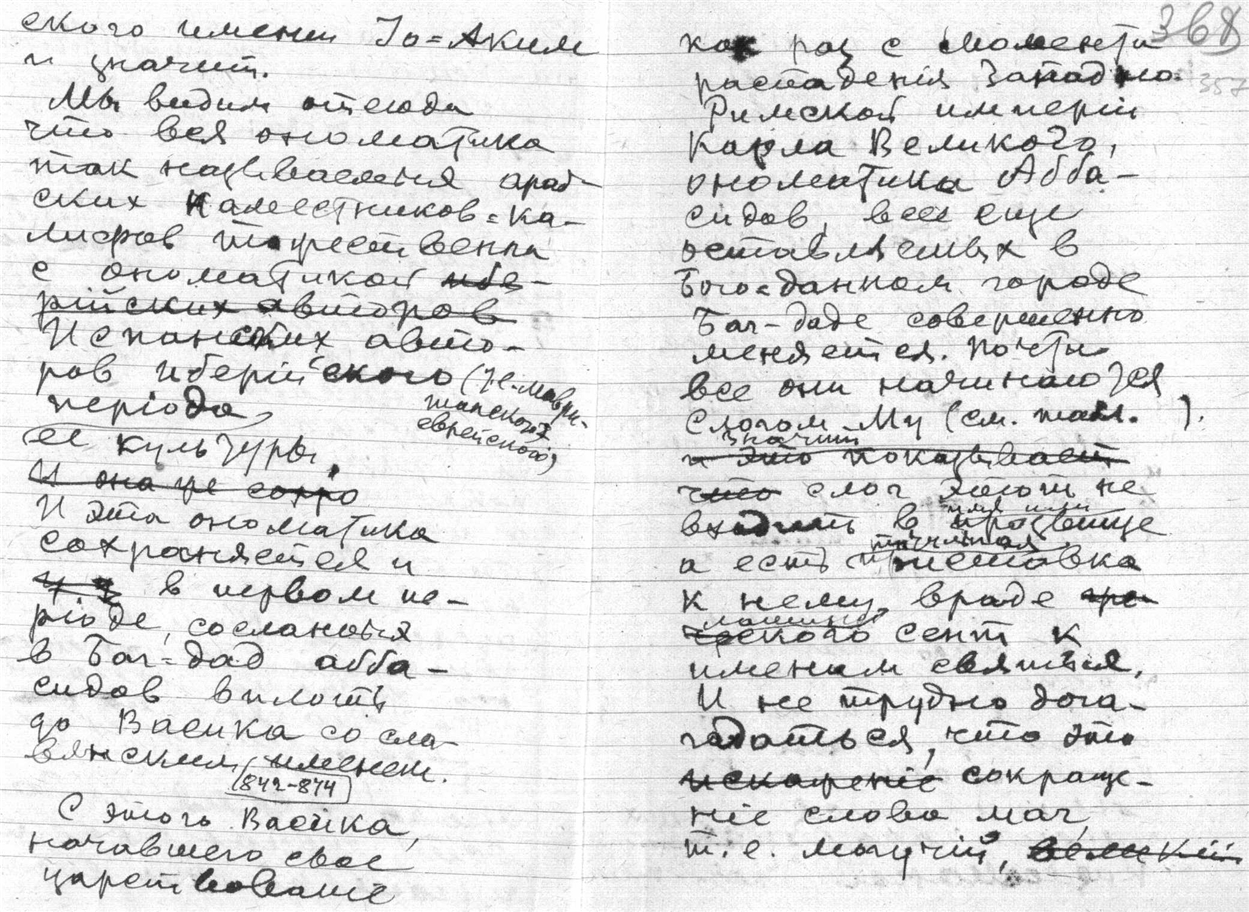 ского имени Іо=Аким
и значит.
Мы видим отсюда
что вся ономатика
так называемых араб-
ских наместников=ка-
лифов тожественна
с ономатикой ибе-
рійских авторов
Испанских авто-
ров иберійского (не-маври-
танской
еврейской)
періода
ее культуры.
И она же сохра
И эта ономатика
сохраняется и
в первом пе-
ріоде, сосланныя
в Баг=дад абба-
сидов вплоть
до Васика со сла-
вянским именем.
(842-874)
С этого Васика,
начавшего свое
царствованіе
368
357
как раз с момента
распаденія Западно-
Римской имперіи
Карла Великого,
ономатика Абба-
сидов, все еще
оставляемых в
Бого=данном городе
Баг-даде совершенно
меняется. Почти
все они начинаются
слогом Му (см. табл. ).
значит
и это показывает
что слог этот не
имя или
входит в прозвище
титульная
а есть приставка
к нему, вроде гре-
латинск
ческого сент к
именам святых.
И не трудно дога-
гадаться, что это
искаженіе сокраще-
ніе слова маг,
т.е. могучій, великій